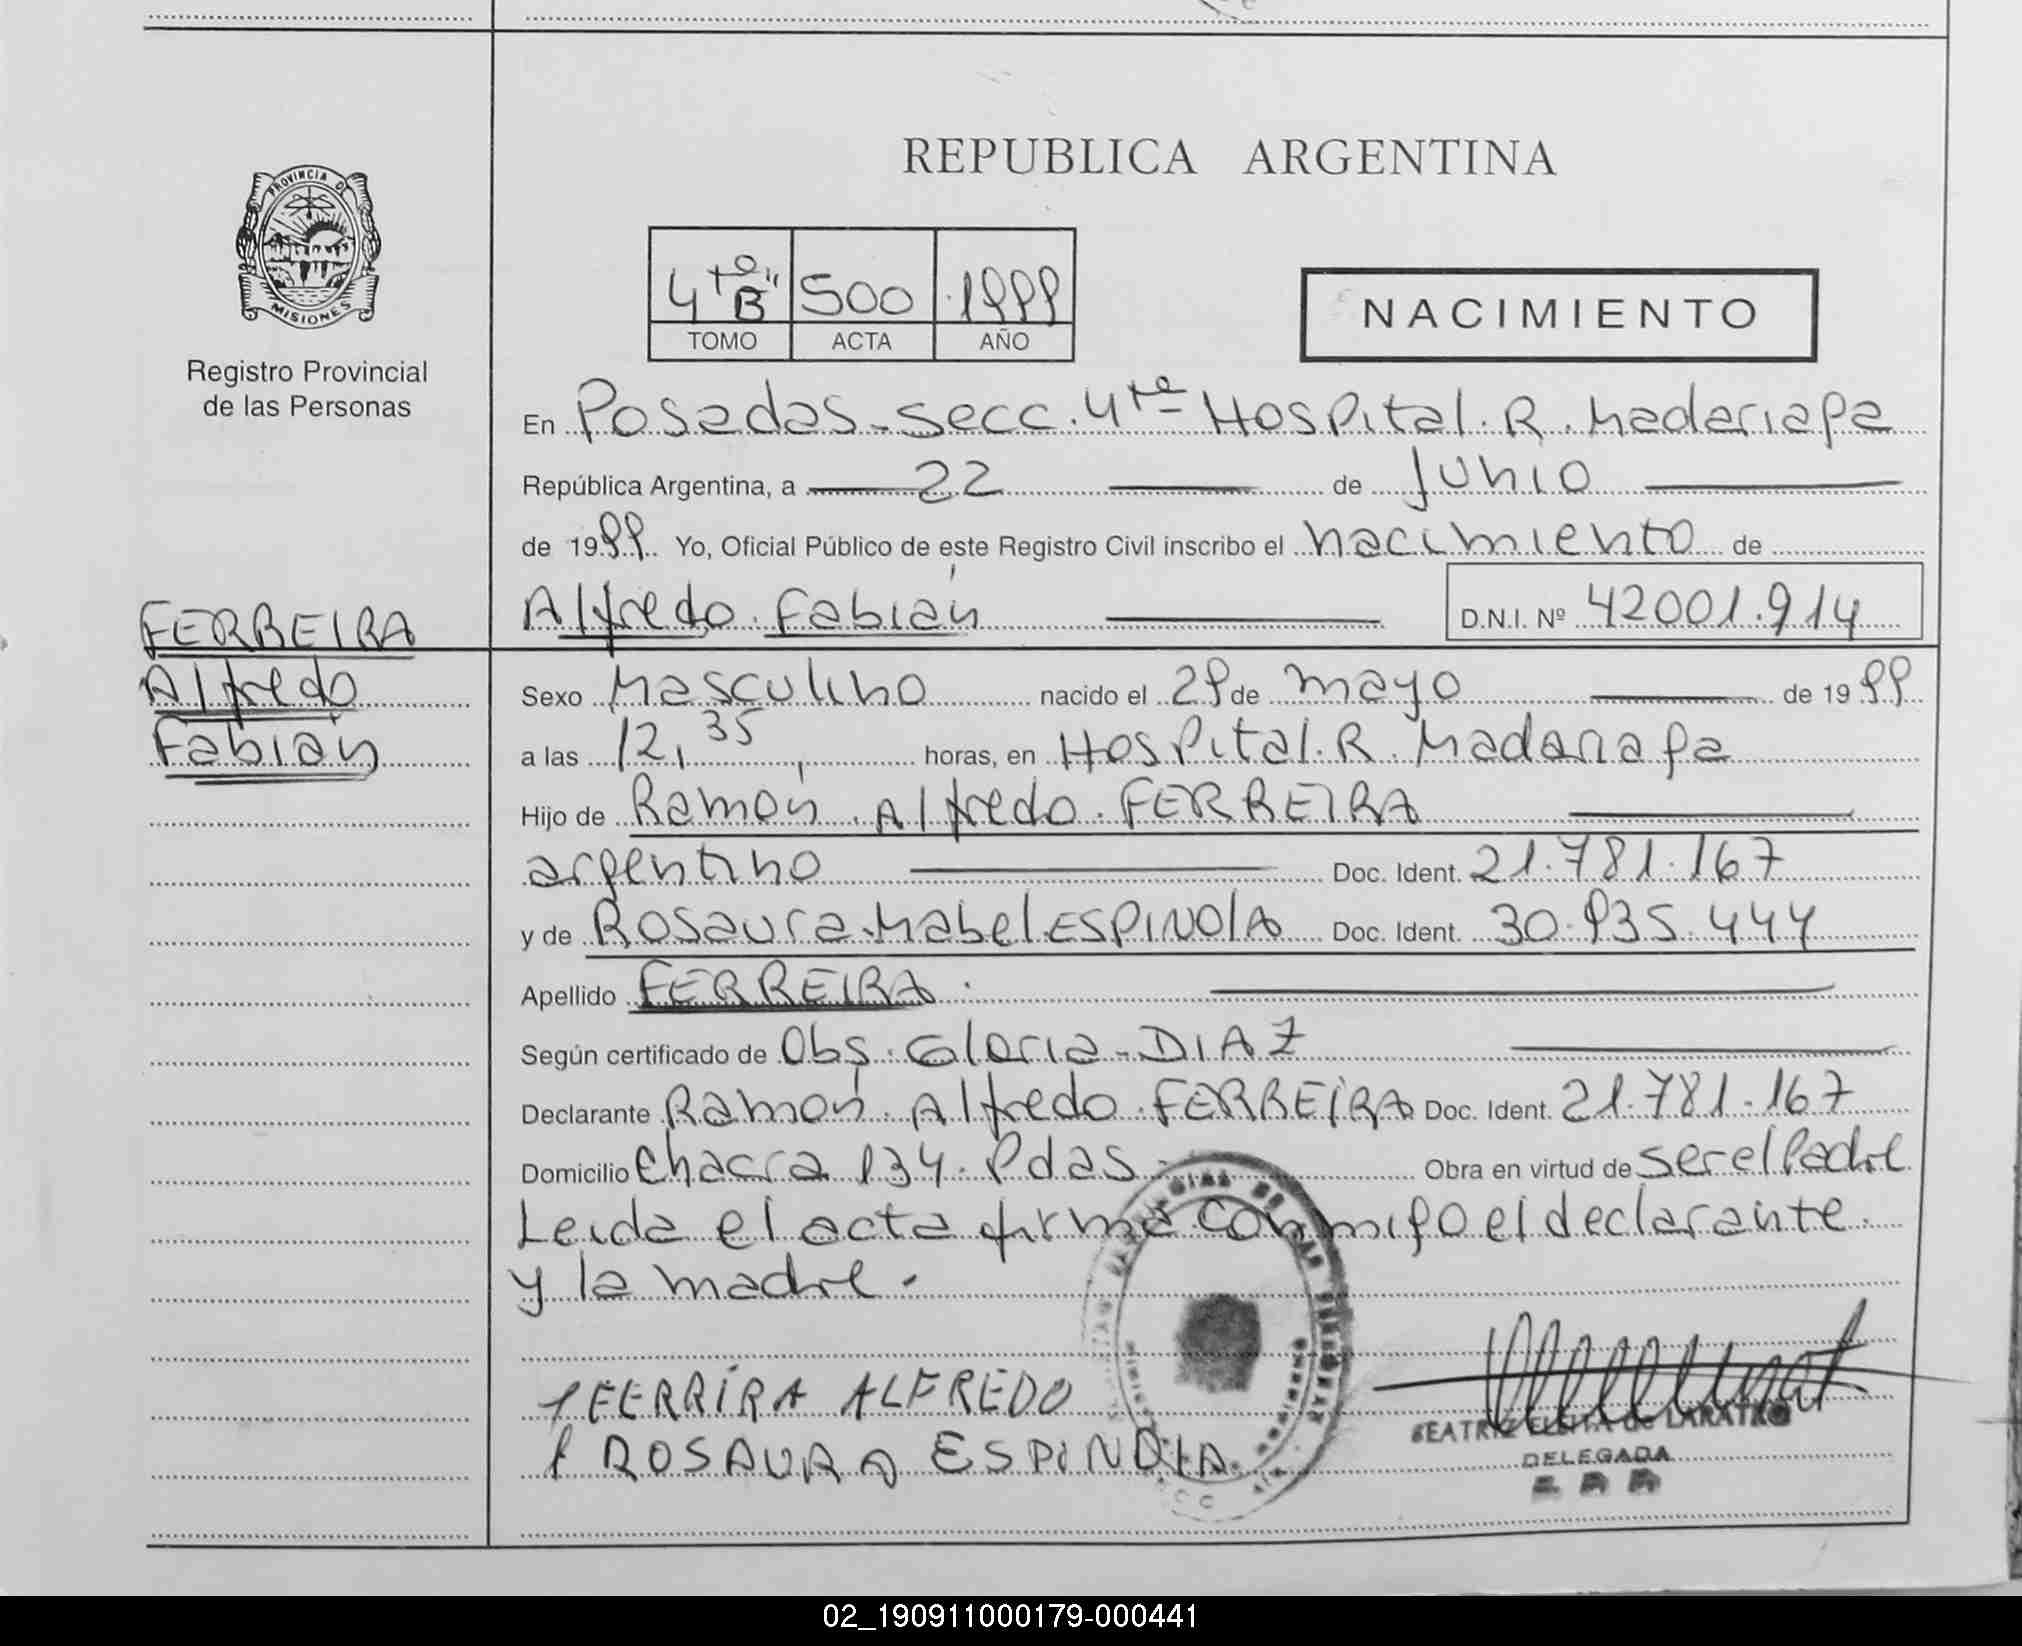 PROVINCIA DE
MISIONES
Registro Provincial
de las Personas
REPUBLICA ARGENTINA
4to "B" 500 1999
TOMO ACTA AÑO
NACIMIENTO
En Posadas-secc. 4ta Hospital. R. Madariaga
República Argentina, a 22 de Junio
de 1999. Yo, Oficial Público de este Registro Civil inscribo el nacimiento de
FERREIRA
Alfredo
Fabián
Alfredo. Fabián D.N.I. Nº 42001.914
Sexo Masculino nacido el 29 de mayo de 1999
a las 12,35 horas, en Hospital. R. Madariaga
Hijo de Ramón. Alfredo. FERREIRA
argentino Doc. Ident. 21.781.167
y de Rosaura. Mabel. ESPINOLA Doc. Ident. 30.935.444
Apellido FERREIRA.
Según certificado de Obs. Gloria-DIAZ
Declarante Ramón. Alfredo. FERREIRA Doc. Ident. 21.781.167
Domicilio Chacra 134. Pdas. Obra en virtud de ser el Padre
Leida el acta firma conmigo el declarante.
y la madre.
FERRIRA ALFREDO
ROSAURA ESPINOLA
BEATRIZ DE LARATRO
DELEGADA
02_190911000179-000441